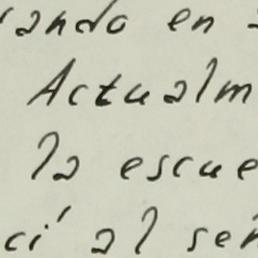 ando en
Actualm
la escue
ci al señ